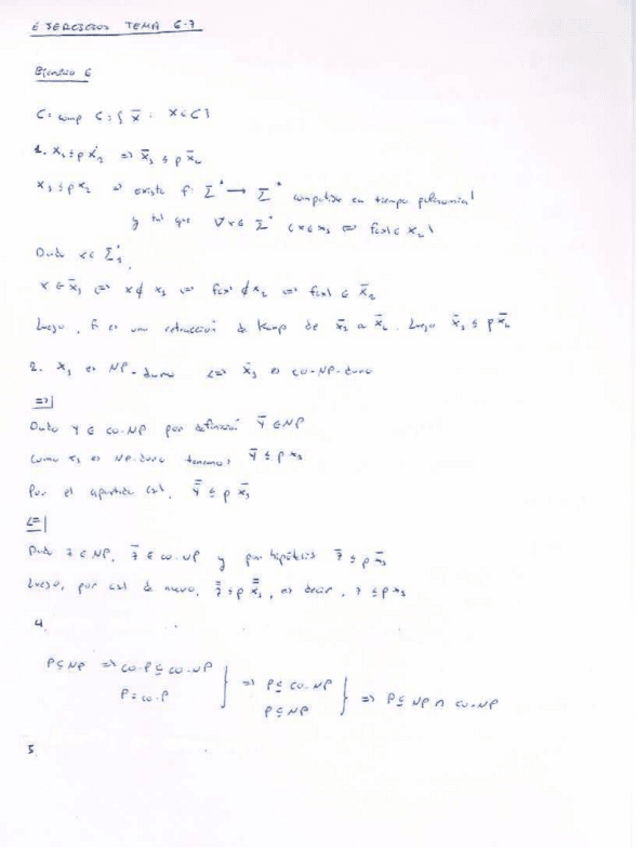 EJERCICIOS TEMA 6-7
Ejercicio 6
C = comp C = { x̄ : x ∈ C }
1. x₁ ≤p x₂ => x̄₁ ≤p x̄₂
x₁ ≤p x₂ => existe f: Σ* → Σ* computable en tiempo polinomial
y tal que ∀x ∈ Σ* (x ∈ x₁ <=> f(x) ∈ x₂)
Dado x ∈ Σ*,
x ∈ x̄₁ <=> x ∉ x₁ <=> f(x) ∉ x₂ <=> f(x) ∈ x̄₂
Luego, f es una reducción de Karp de x̄₁ a x̄₂. Luego x̄₁ ≤p x̄₂
2. x₁ es NP-duro <=> x̄₁ es co-NP-duro
=>|
Dado Y ∈ co-NP por definición Ȳ ∈ NP
Como x₁ es NP-duro tenemos Ȳ ≤p x₁
Por el apartado (1), Ȳ̄ ≤p x̄₁
<=|
Dado z ∈ NP, z̄ ∈ co-NP y por hipótesis z̄ ≤p x̄₁
Luego, por (1) de nuevo, z̄̄ ≤p x̄̄₁, es decir, z ≤p x₁
4.
P ⊆ NP => co-P ⊆ co-NP
P = co-P } => P ⊆ co-NP
P ⊆ NP } => P ⊆ NP ∩ co-NP
5